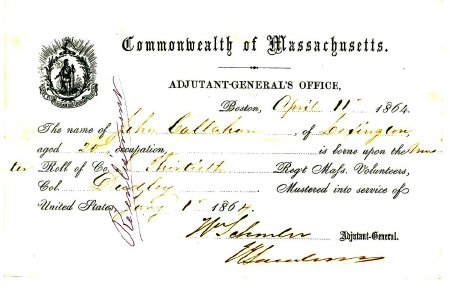 Commonwealth of Massachusetts.
ADJUTANT-GENERAL'S OFFICE,
Boston, April 11 1864
The name of John Callahan, of Lexington,
aged 20 occupation, is borne upon the Mus
ter Roll of Co. Thirtieth Reg't Mass. Volunteers,
Col. Dudley Mustered into service of
United States Jany 1st 1864.
Wm Schouler Adjutant-General.
Reenlistment